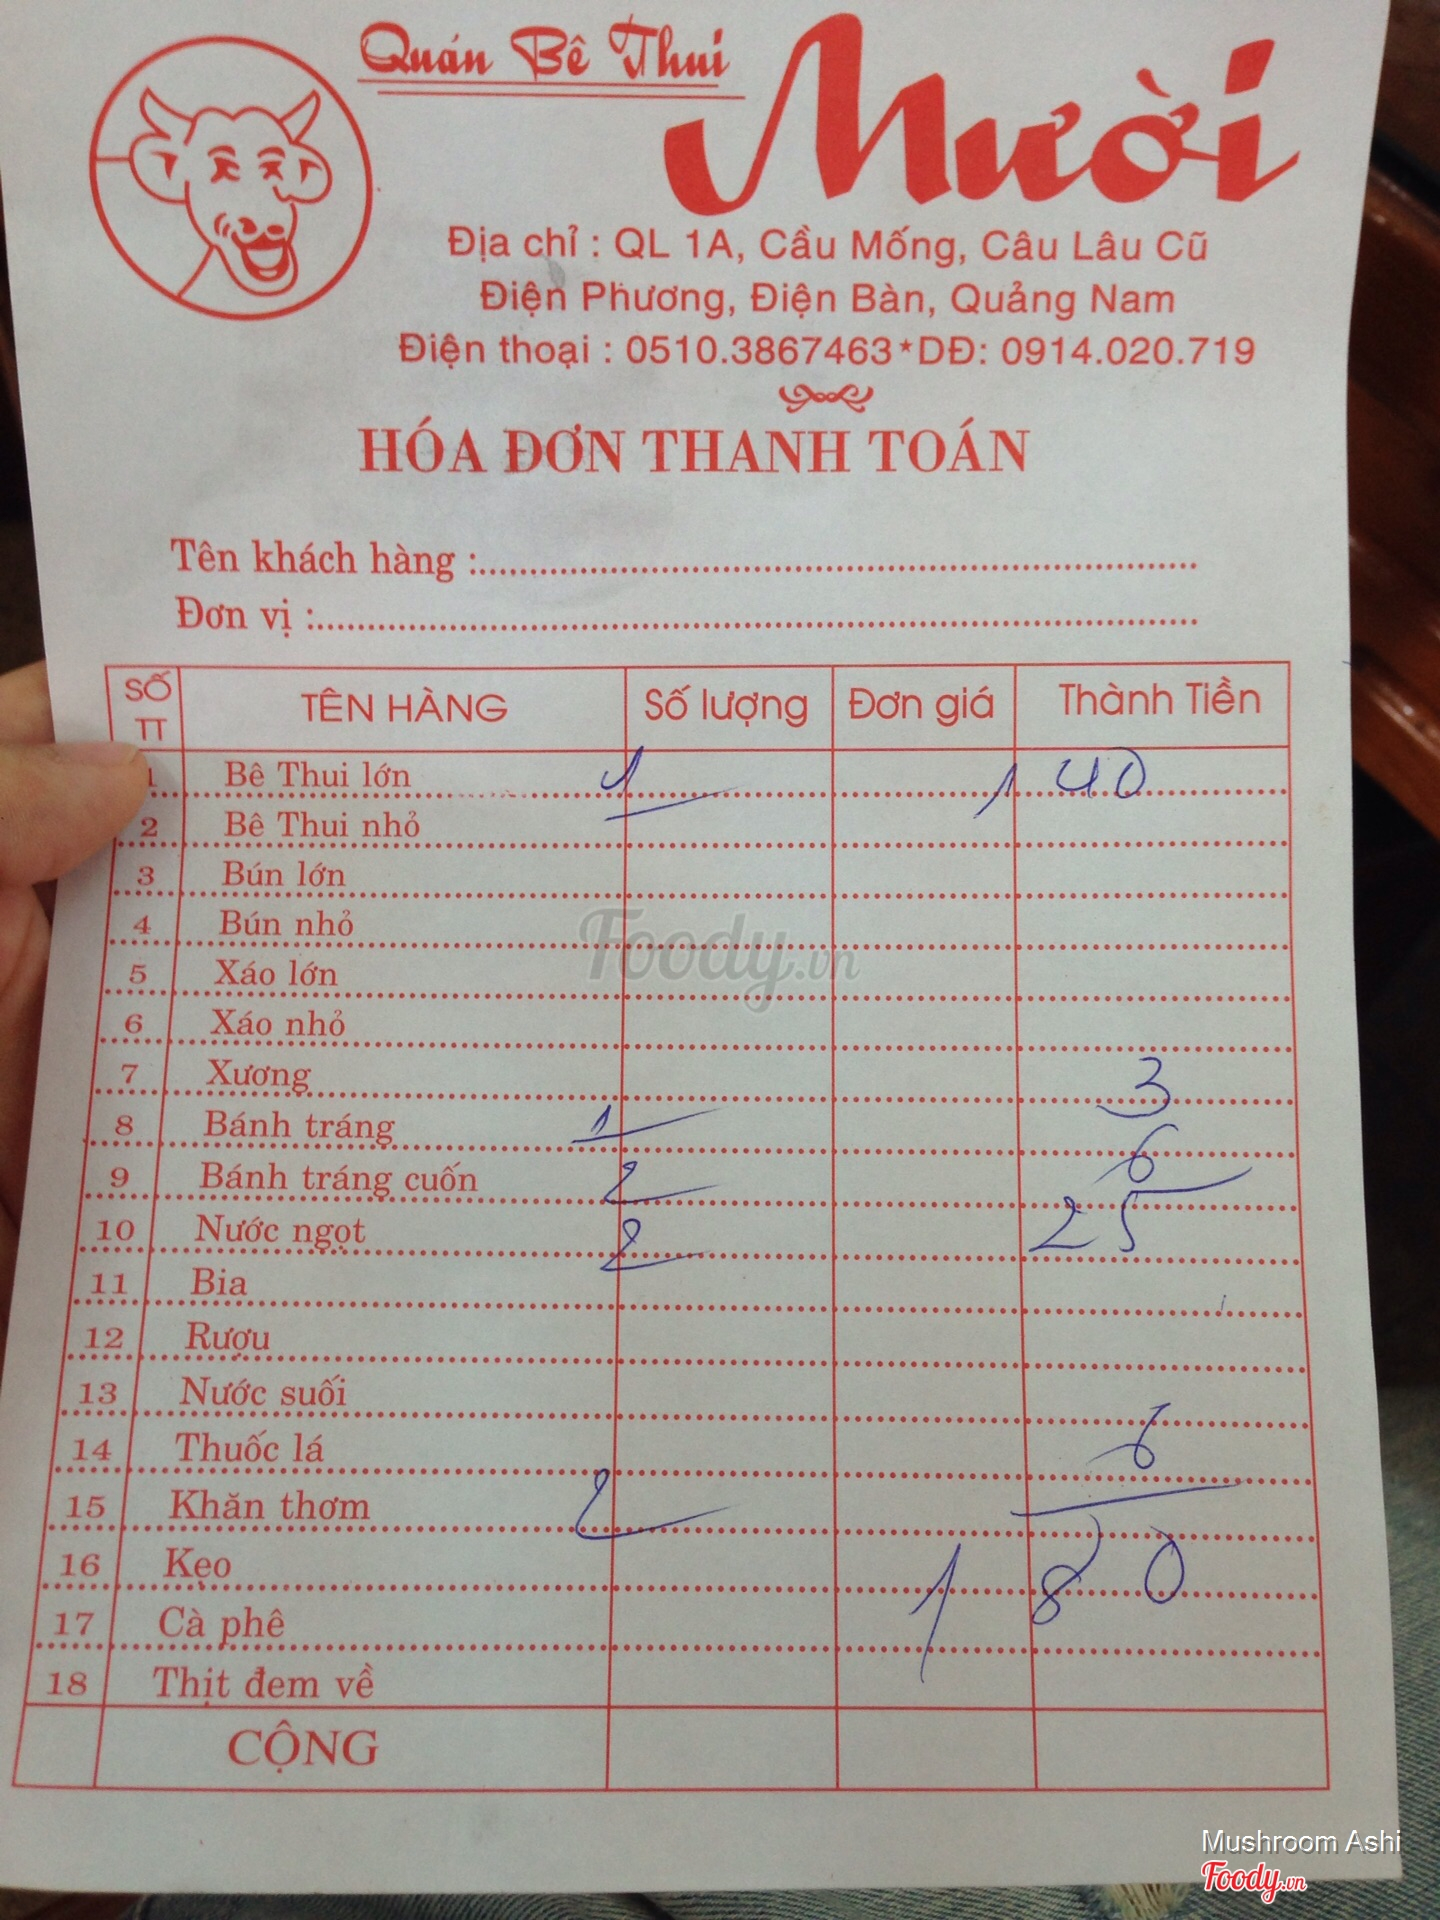 Quán Bê Thui
Mười
Địa chỉ : QL 1A, Cầu Mống, Câu Lâu Cũ
Điện Phương, Điện Bàn, Quảng Nam
Điện thoại : 0510.3867463*DĐ: 0914.020.719
HÓA ĐƠN THANH TOÁN
Tên khách hàng :
Đơn vị :
SỐ TT TÊN HÀNG Số lượng Đơn giá Thành Tiền
1 Bê Thui lớn 1 140
2 Bê Thui nhỏ
3 Bún lớn
4 Bún nhỏ
5 Xáo lớn
6 Xáo nhỏ
7 Xương
8 Bánh tráng 1 3
9 Bánh tráng cuốn 2 6
10 Nước ngọt 2 25
11 Bia
12 Rượu
13 Nước suối
14 Thuốc lá
15 Khăn thơm 2 6
16 Kẹo 180
17 Cà phê
18 Thịt đem về
CỘNG
Foody.vn
Mushroom Ashi
Foody.vn